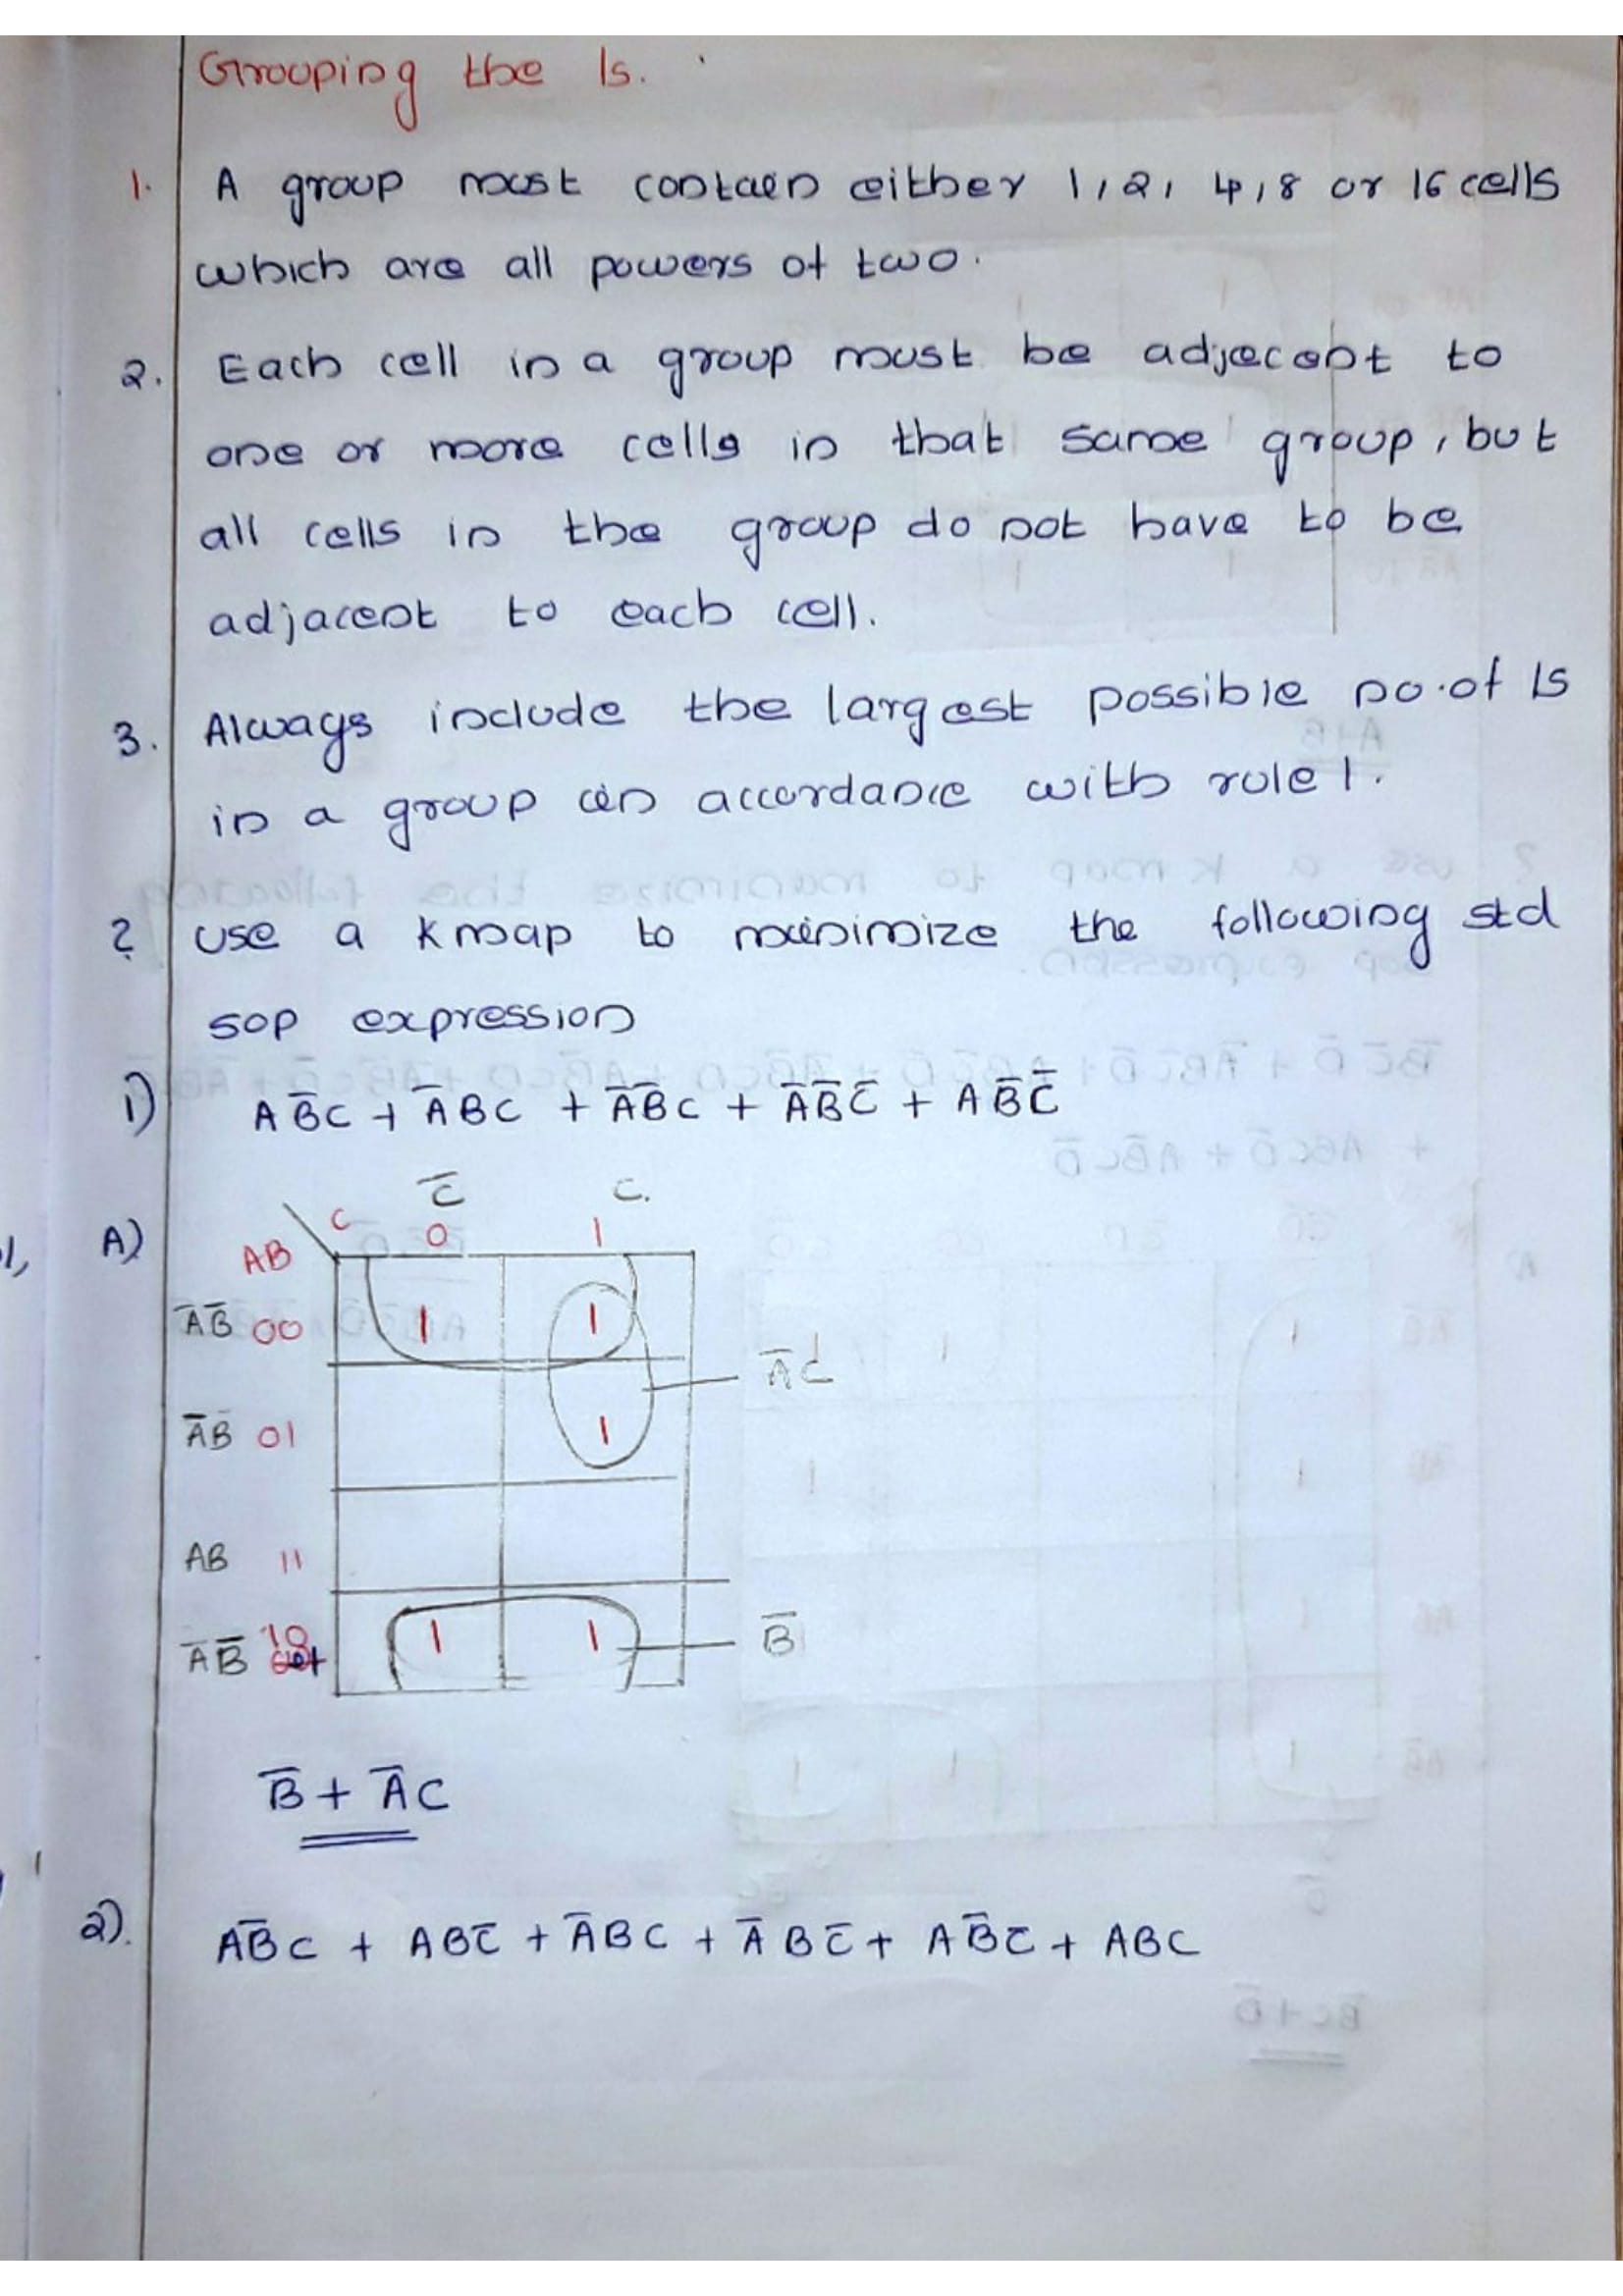 Grouping the 1s.
1. A group must contain either 1, 2, 4, 8 or 16 cells
which are all powers of two.
2. Each cell in a group must be adjecent to
one or more cells in that same group, but
all cells in the group do not have to be
adjacent to each cell.
3. Always include the largest possible no. of 1s
in a group in accordance with rule 1.
? use a k map to minimize the following std
sop expression
1) AB̅C + A̅BC + A̅B̅C + A̅B̅C̅ + AB̅C̅
C̅ C.
A) AB C 0 1
A̅B̅ 00 1 1
A̅C
A̅B 01 1
AB 11
A̅B̅ 10 1 1 B̅
B̅ + A̅C
2). AB̅C + ABC̅ + A̅BC + A̅BC̅ + AB̅C̅ + ABC